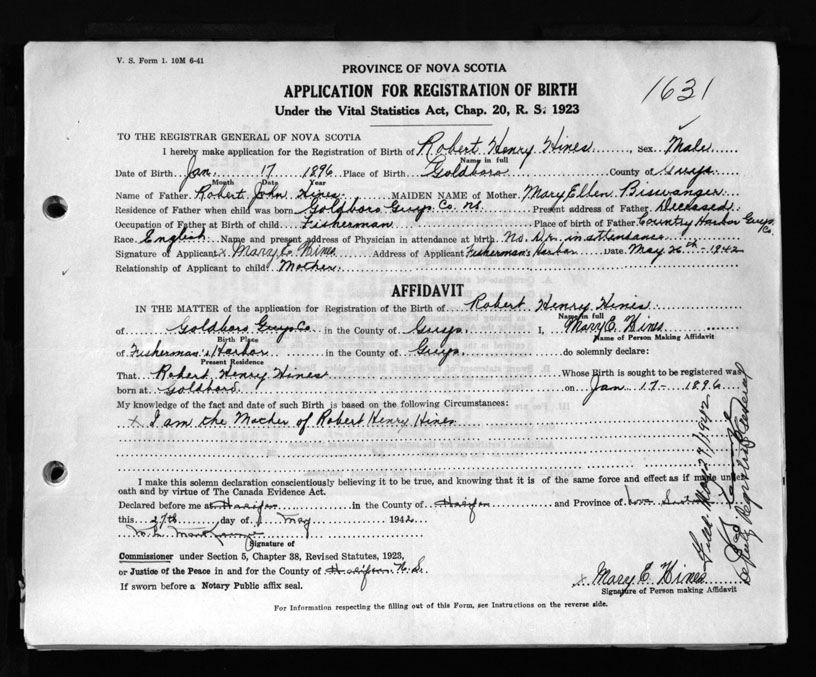 V. S. Form 1. 10M 6-41
PROVINCE OF NOVA SCOTIA
APPLICATION FOR REGISTRATION OF BIRTH
Under the Vital Statistics Act, Chap. 20, R. S. 1923
1631
TO THE REGISTRAR GENERAL OF NOVA SCOTIA
I hereby make application for the Registration of Birth of Robert Henry Hines, Sex Male
Name in full
Date of Birth Jan. 17 1896 Place of Birth Goldboro County of Guys.
Month Date Year
Name of Father Robert John Hines MAIDEN NAME of Mother Mary Ellen Biswanger
Residence of Father when child was born Goldboro Guys. Co. NS. Present address of Father Deceased.
Occupation of Father at Birth of child Fisherman Place of birth of Father Country Harbor Guys Co.
Race English Name and present address of Physician in attendance at birth No. Dr. in attendance
Signature of Applicant x Mary E Hines Address of Applicant Fisherman's Harbor Date May 26th 1942
Relationship of Applicant to child Mother.
AFFIDAVIT
IN THE MATTER of the application for Registration of the Birth of Robert Henry Hines
Name in full
of Goldboro Guys Co in the County of Guys. I, Mary E. Hines
Birth Place Name of Person Making Affidavit
of Fisherman's Harbor in the County of Guys. do solemnly declare:
Present Residence
That Robert Henry Hines Whose Birth is sought to be registered was
born at Goldboro on Jan 17- 1896
My knowledge of the fact and date of such Birth is based on the following Circumstances:
x I am the Mother of Robert Henry Hines
I make this solemn declaration conscientiously believing it to be true, and knowing that it is of the same force and effect as if made under
oath and by virtue of The Canada Evidence Act.
Declared before me at Halifax in the County of Halifax and Province of Nova Scotia
this 27th day of May 1942
Signature of
Commissioner under Section 5, Chapter 38, Revised Statutes, 1923,
or Justice of the Peace in and for the County of Halifax N.S.
If sworn before a Notary Public affix seal.
x Mary E. Hines
Signature of Person making Affidavit
For Information respecting the filling out of this Form, see Instructions on the reverse side.
May 27/1942
Deputy Registrar General